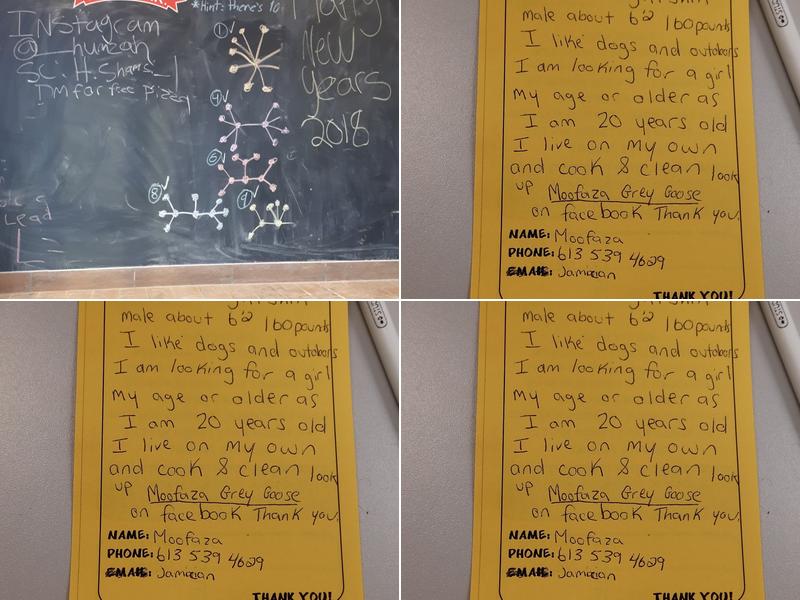 *Hint: there's 10
Happy
New
Years
2018
INstagram
@__humzah
SC: H.Shams_1
DM for free Pizza
1
4
6
8
9
Lead
male about 6'2 160 pounds
I like dogs and outdoors
I am looking for a girl
my age or older as
I am 20 years old
I live on my own
and cook & clean look
up Moofaza Grey Goose
on facebook Thank you.
NAME: Moofaza
PHONE: 613 539 4629
EMAIL: Jamaican
THANK YOU!
male about 6'2 160 pounds
I like dogs and outdoors
I am looking for a girl
my age or older as
I am 20 years old
I live on my own
and cook & clean look
up Moofaza Grey Goose
on facebook Thank you.
NAME: Moofaza
PHONE: 613 539 4629
EMAIL: Jamaican
THANK YOU!
male about 6'2 160 pounds
I like dogs and outdoors
I am looking for a girl
my age or older as
I am 20 years old
I live on my own
and cook & clean look
up Moofaza Grey Goose
on facebook Thank you.
NAME: Moofaza
PHONE: 613 539 4629
EMAIL: Jamaican
THANK YOU!